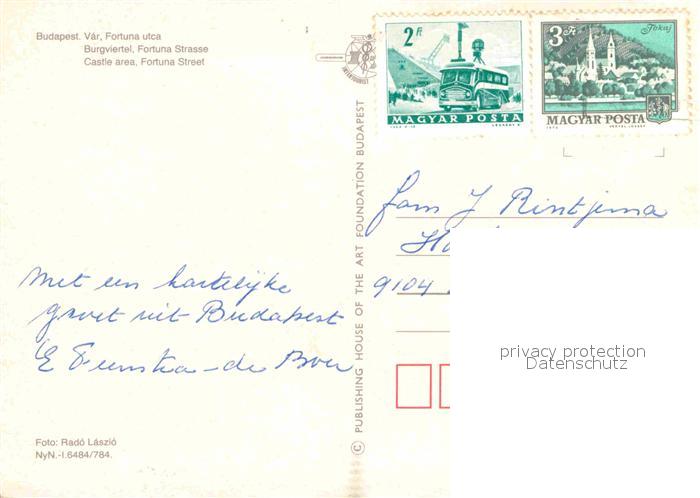 Budapest. Vár, Fortuna utca
Burgviertel, Fortuna Strasse
Castle area, Fortuna Street
INTERTOURIST
2 Ft
MAGYAR POSTA
3 Ft Tokaj
MAGYAR POSTA
© PUBLISHING HOUSE OF THE ART FOUNDATION BUDAPEST
fam J Rintjema
9104
Met een hartelijke
groet uit Budapest
E Feenstra-de Boer
privacy protection
Datenschutz
Foto: Radó László
NyN.-I.6484/784.